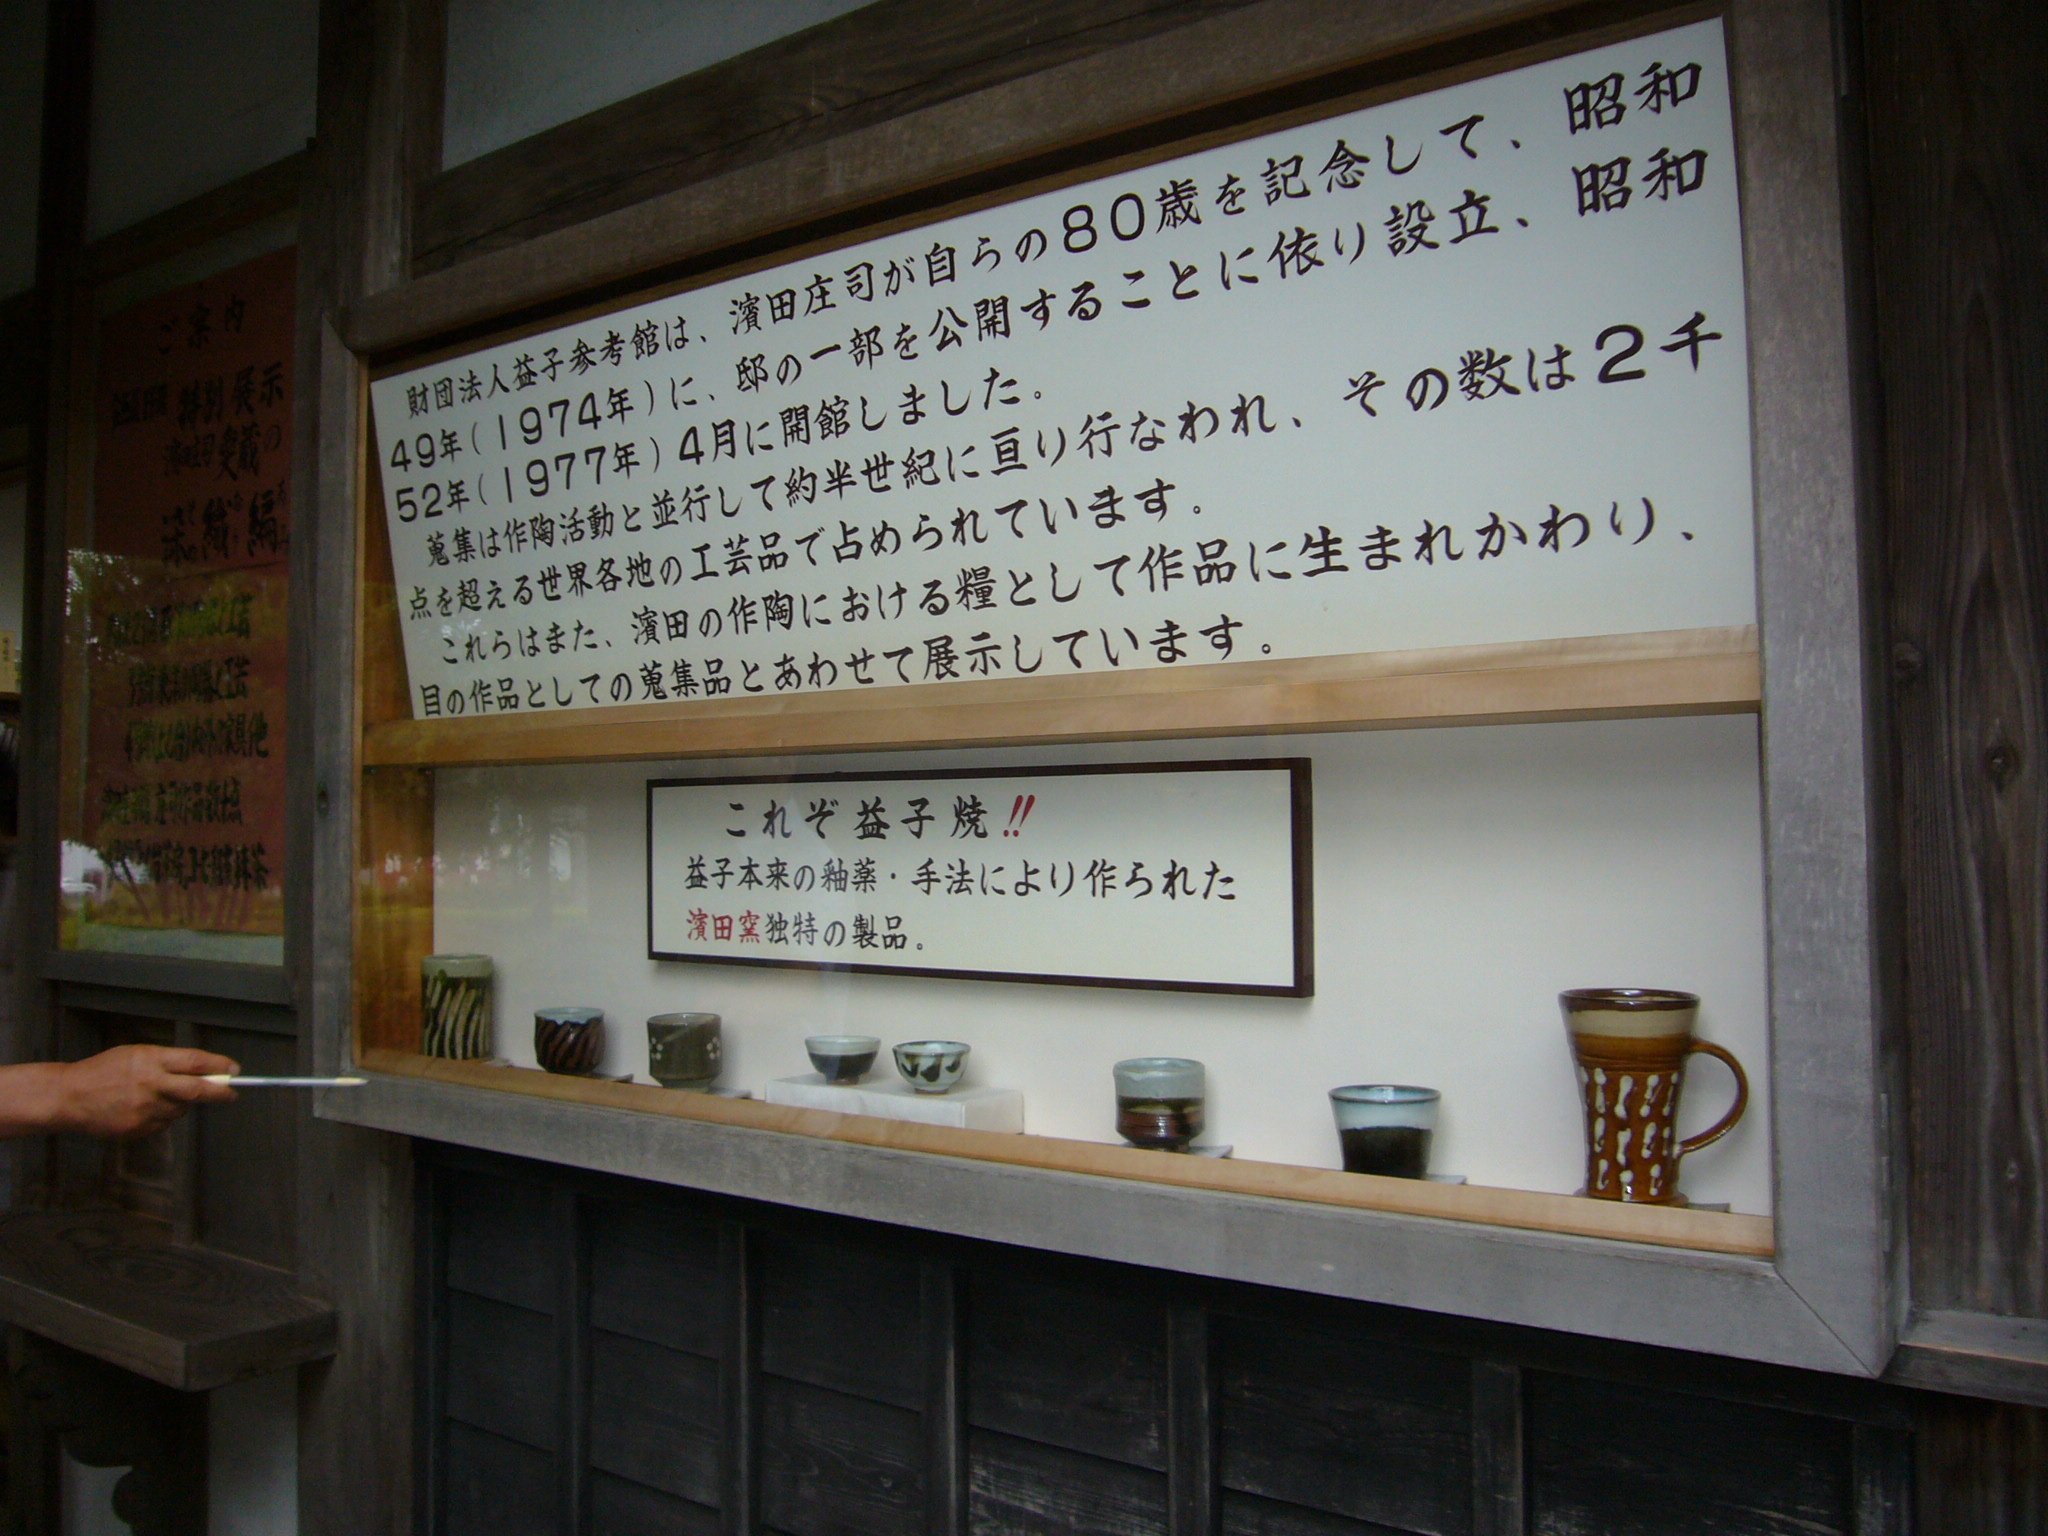 財団法人益子参考館は、濱田庄司が自らの80歳を記念して、昭和
49年(1974年)に、邸の一部を公開することに依り設立、昭和
52年(1977年)4月に開館しました。
蒐集は作陶活動と並行して約半世紀に亘り行なわれ、その数は2千
点を超える世界各地の工芸品で占められています。
これらはまた、濱田の作陶における糧として作品に生まれかわり、
目の作品としての蒐集品とあわせて展示しています。
これぞ益子焼!!
益子本来の釉薬・手法により作られた
濱田窯独特の製品。
ご案内
特別展示
愛蔵の
染織編